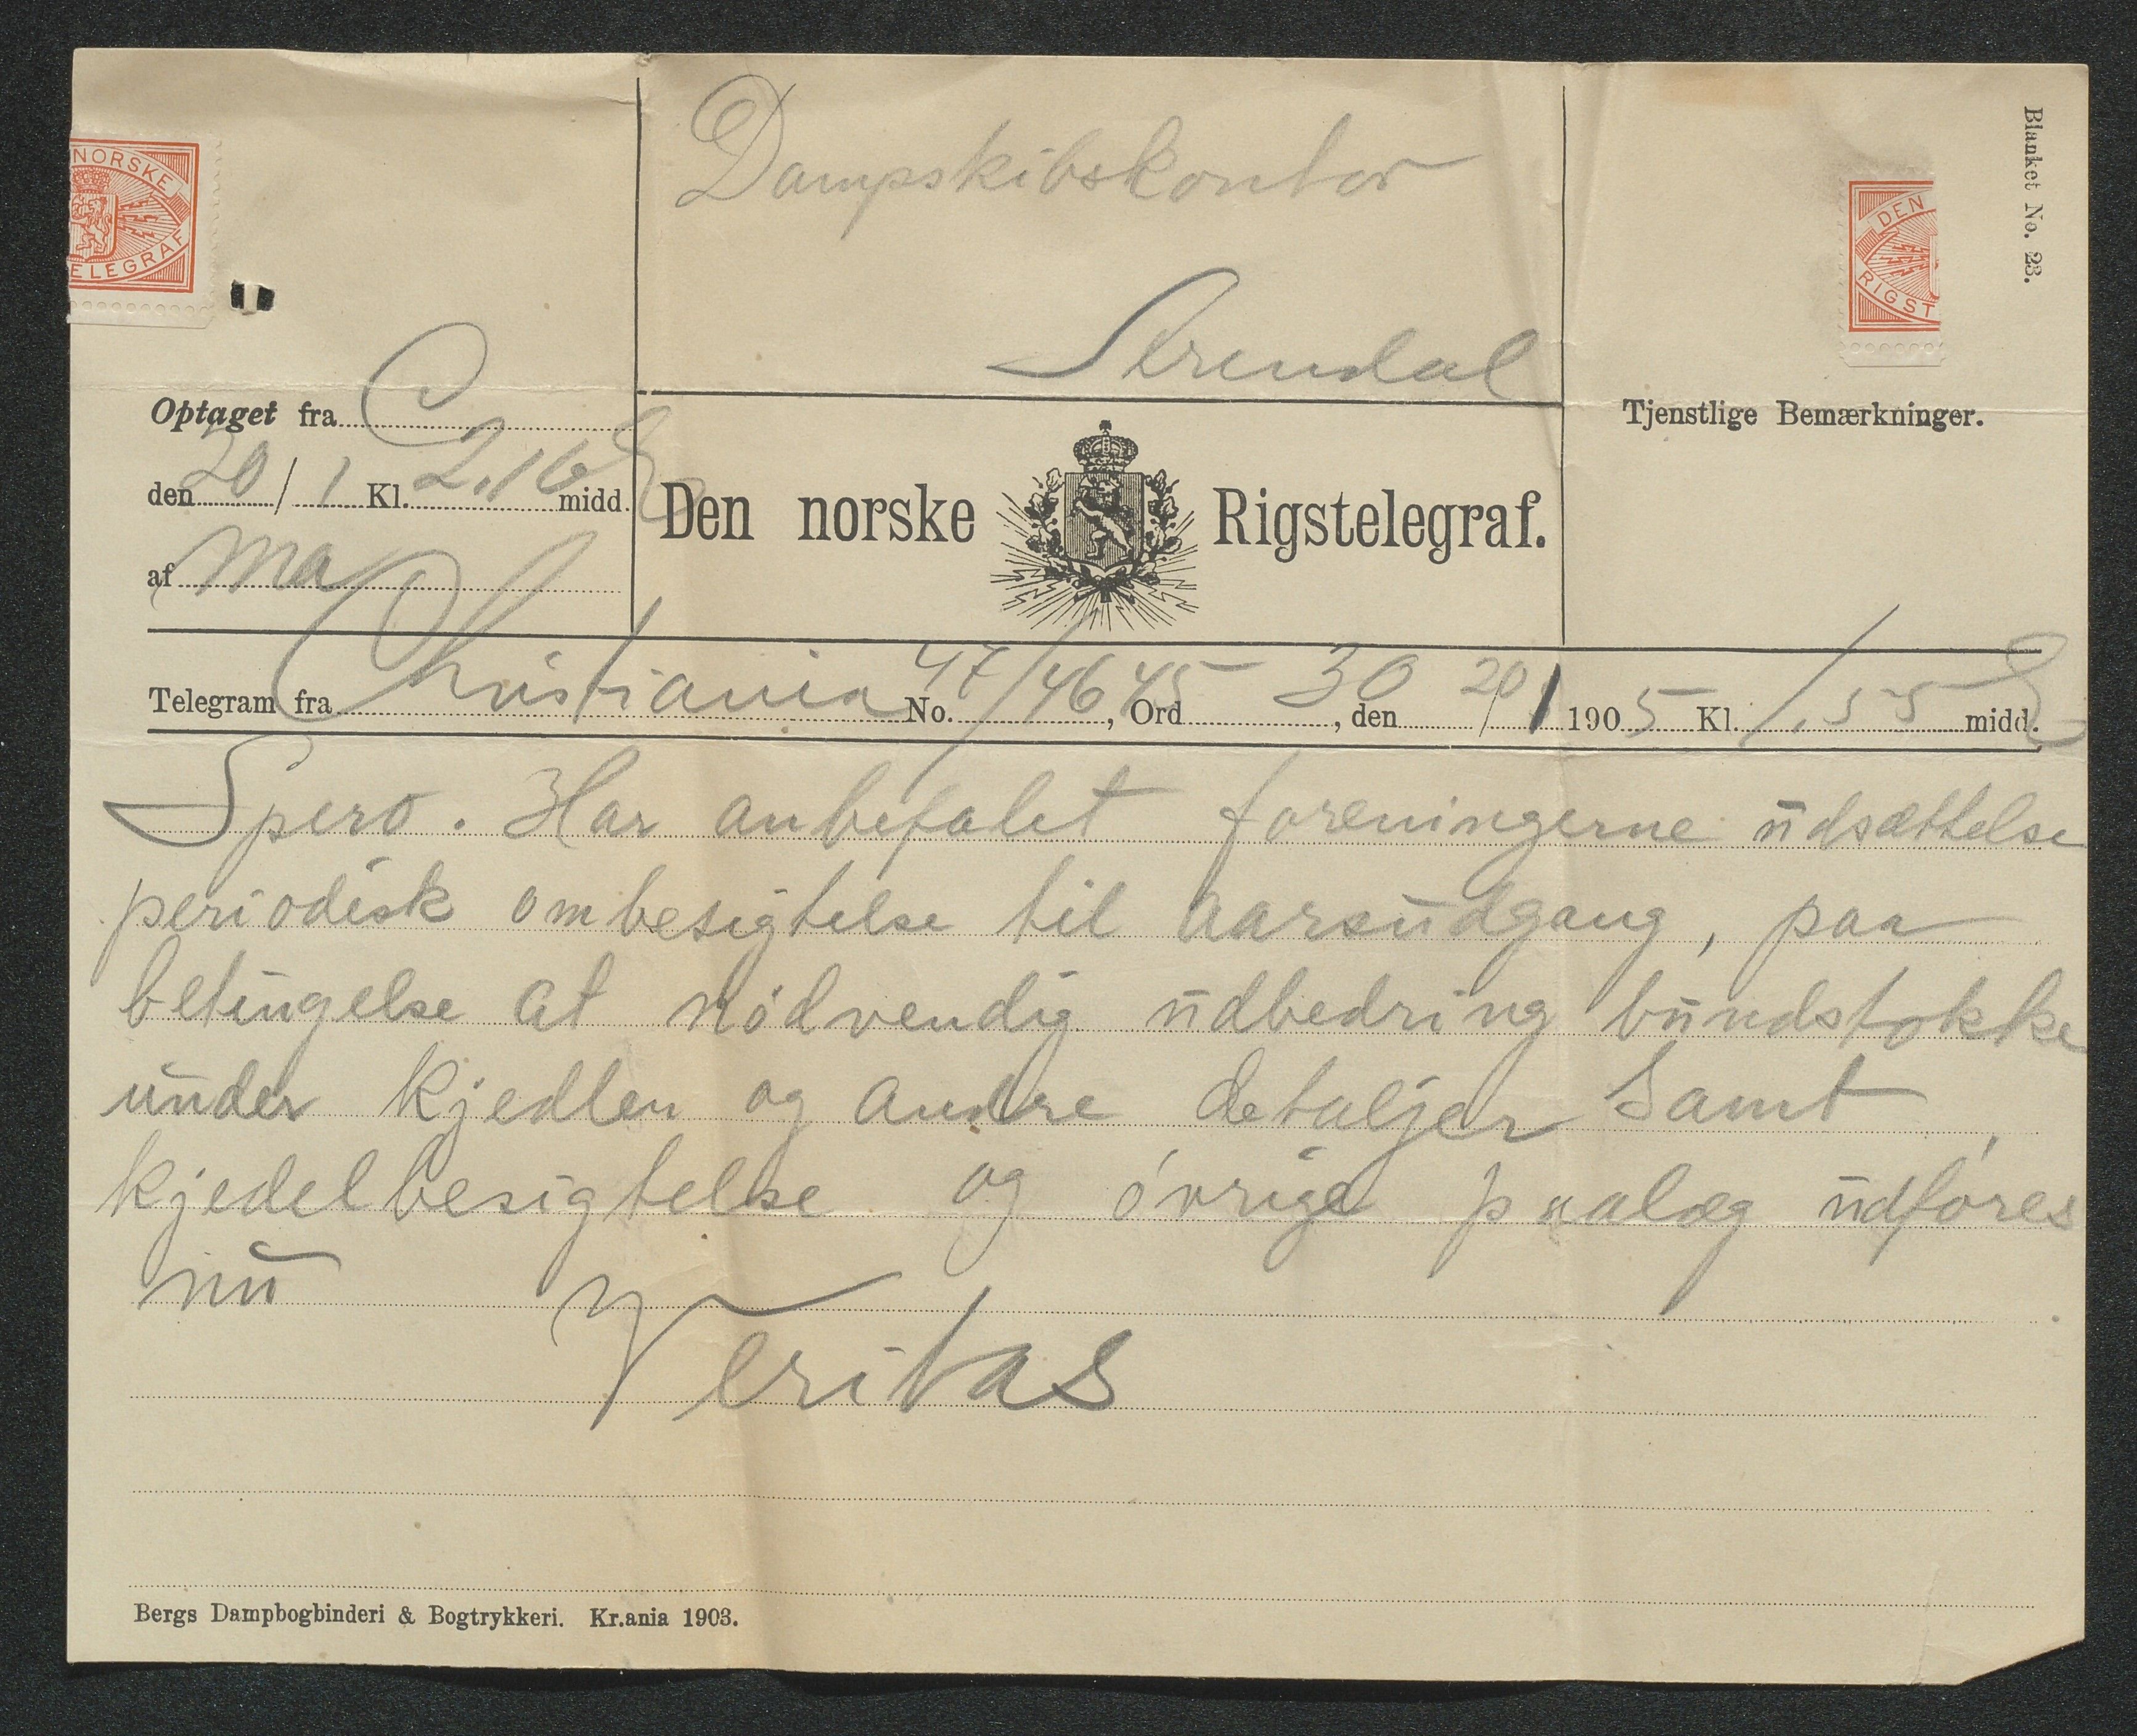 Blanket No. 23.
NORSKE
ELEGRAF
DEN
RIGST
Dampskibskontor
Arendal
Optaget fra C
den 20/1 Kl. 2.16 E midd.
af Ma
Den norske Rigstelegraf.
Tjenstlige Bemærkninger.
Telegram fra Christiania No. 47/4645, Ord 30, den 20/1 1905 Kl. 1.55 E midd.
Spero. Har anbefalet foreningerne udsættelse
periodisk ombesigtelse til aarsudgang, paa
betingelse at nödvendig udbedring bundstokke
under kjedlen og andre detaljer samt
kjedelbesigtelse og óvrige paalæg udfóres
nu
Veritas
Bergs Dampbogbinderi & Bogtrykkeri. Kr.ania 1903.